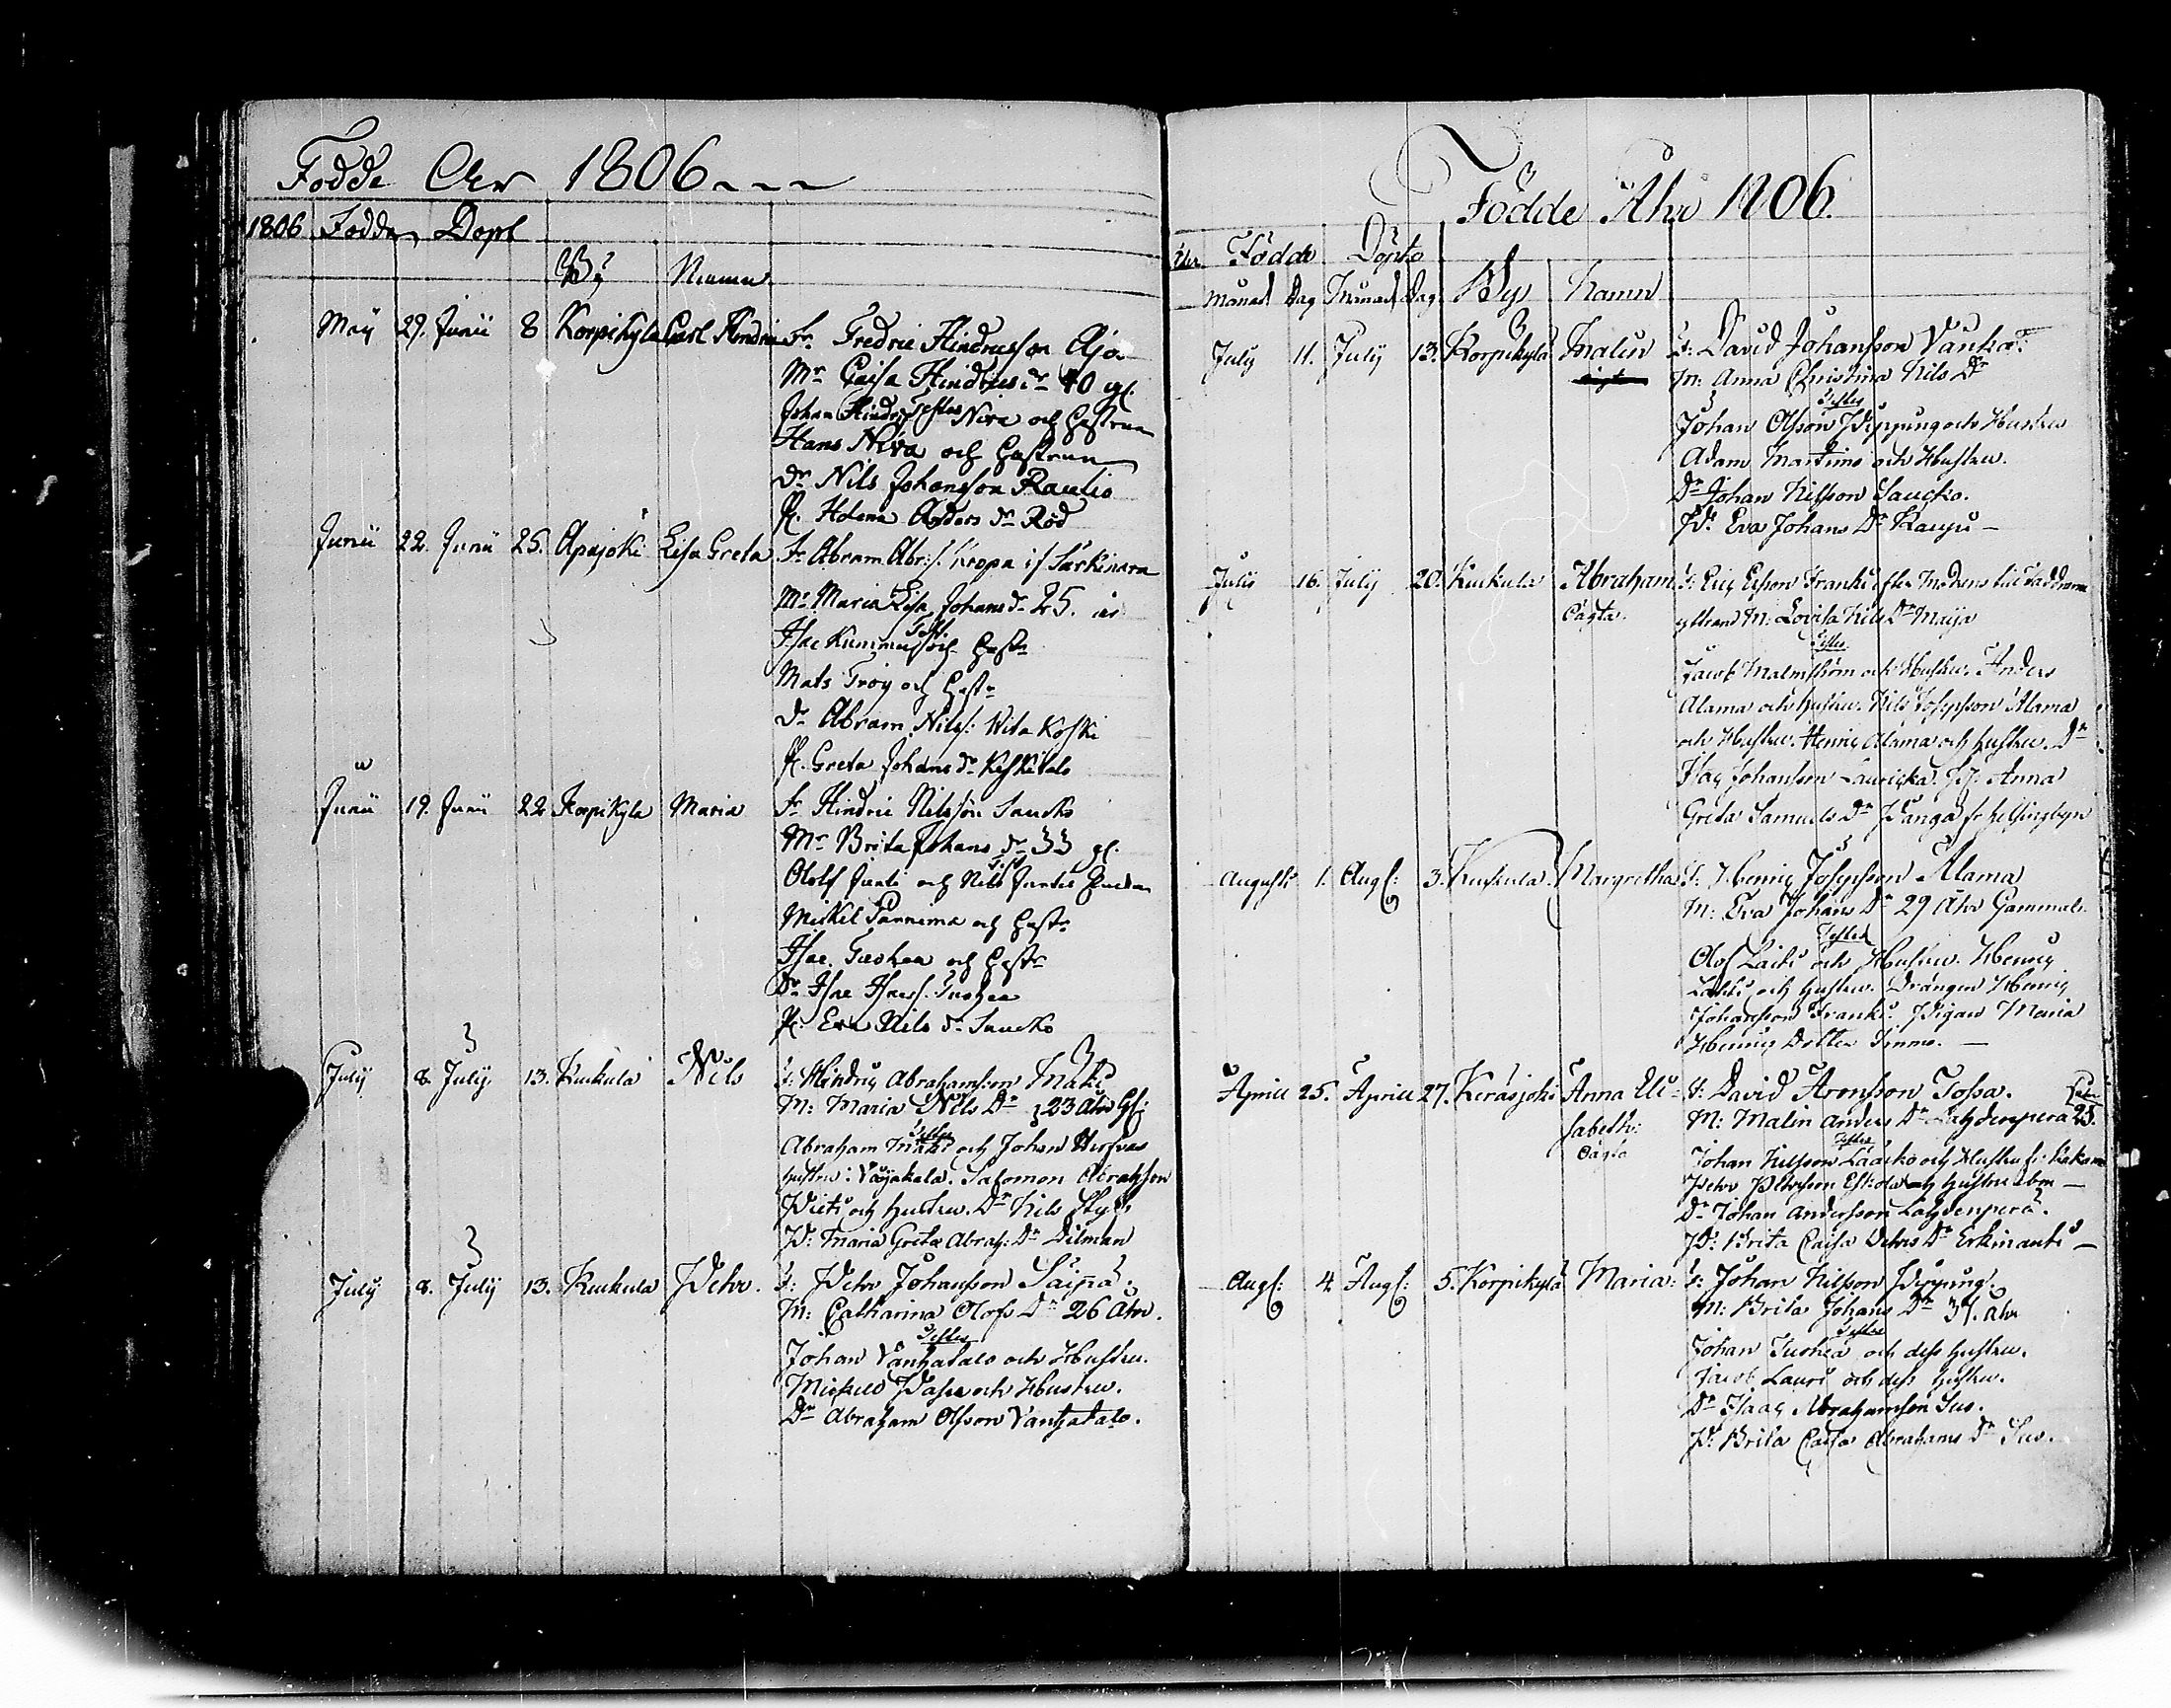 Födde Åhr 1806
1806 Födde, Dopt
By Namn
Maij 29. Junii 8 Korpikyla Carl Hindric Fr Fredric Hindricsson Ajo
Mr Caisa Hindrics dr 40 gl.
Johan Hindrics Niva och Hustrun
Testes
Hans Niva och Hustrun
Dr Nils Johansson Rautio
P. Helena Anders dr Röd
Junii 22. Junii 25. Apajoki Lisa Greta Fr Abram Abr:s. Kropa i Särkinara
Mr Maria Lisa Johans dr 25. år
Test
Isac Kummu och Hustr
Mats Troij och Hustr
Dr Abram Nilss: Wita Koski
P. Greta Johans dr Keskitalo
Junii 19. Junii 22 Korpikyla Maria Fr Hindric Nilsson Saucko
Mr Brita Johans dr 33 gl.
Test
Olof Junti och Nils Juntis
Mickel Pannima och Hustr
Isac Tuohea och Hustr
Dr Isac Isacs. Tuohea
P. Eva Nils dr Saucko
July 8. July 13. Kuckula Nils F: Hindric Abrahamsson Mäki
M: Maria Nils Dr 23 Åhr Gl:
Testes
Abraham Mäki och Johan
hustru: Väyäkala. Salomon Abrahsson
Pieti och hustru. Dr Nils
P: Maria Greta Abrah: Dr Dilman
July 8. July 13. Kuckula Pehr. F: Pehr Johansson Saipa.
M: Catharina Olofs Dr 26 Åhr.
Testes
Johan Vanhatalo och Hustru.
Mickel och Hustru.
Dr Abraham Olsson Vanhatalo.
Födde Åhr 1806.
Åhr Födde Döpte
Månad Dag Månad Dag By Namn
July 11. July 13. Korpikylä Malin F: David Johansson Vanha
M: Anna Christina Nils Dr
Testes
Johan Olsson Pipping och Hustru
Adam Martimo och Hustru.
Dr Johan Nilsson Saucko.
P: Eva Johans Dr Kauju –
July 16. July 20. Kuckula Abraham F: Eric Ersson Franki Modrens
oägta. yttrand M: Lovisa Nils Dr Maija
Testes
Jacob Malmström och Hustru. Anders
Alama och hustru. Nils Josepsson Alama
och Hustru. Henric Alama och hustru. Dr
Isac Johansson Lauricka. P: Anna
Greta Samuels Dr Panga fr Helsingbyn
Augusti 1. Aug: 3. Kuckula Margretha F: Henric Josepsson Alama
M: Eva Johans Dr 29 Åhr Gammal.
Testes
Olof Laiti och Hustru. Henric
Laiti och hustru. Drängen Henric
Johansson Franki. Pigan Maria
Henrics Dotter Timmo. –
Aprill 25. Aprill 27. Keräsjoki Anna Eli- F: David Aronsson Tossa.
sabeth: M: Malin Anders Dr Lahdenperä 28.
oägta
Testes
Johan Nilsson Laacko och Hustru
Pehr Pehrsson Eskola och hustru
Dr Johan Andersson Lahdenperä.
P: Brita Caisa Pehrs Dr Erkinanti –
Aug: 4. Aug: 5. Korpikylä Maria: F: Johan Nilsson Pipping.
M: Brita Johans Dr 37. Åhr
Testes
Johan Tuohea och dess hustru.
Jacob Lauri och dess hustru.
Dr Isaac Abrahamson Suo.
P: Brita Caisa Abrahams Dr Suo.